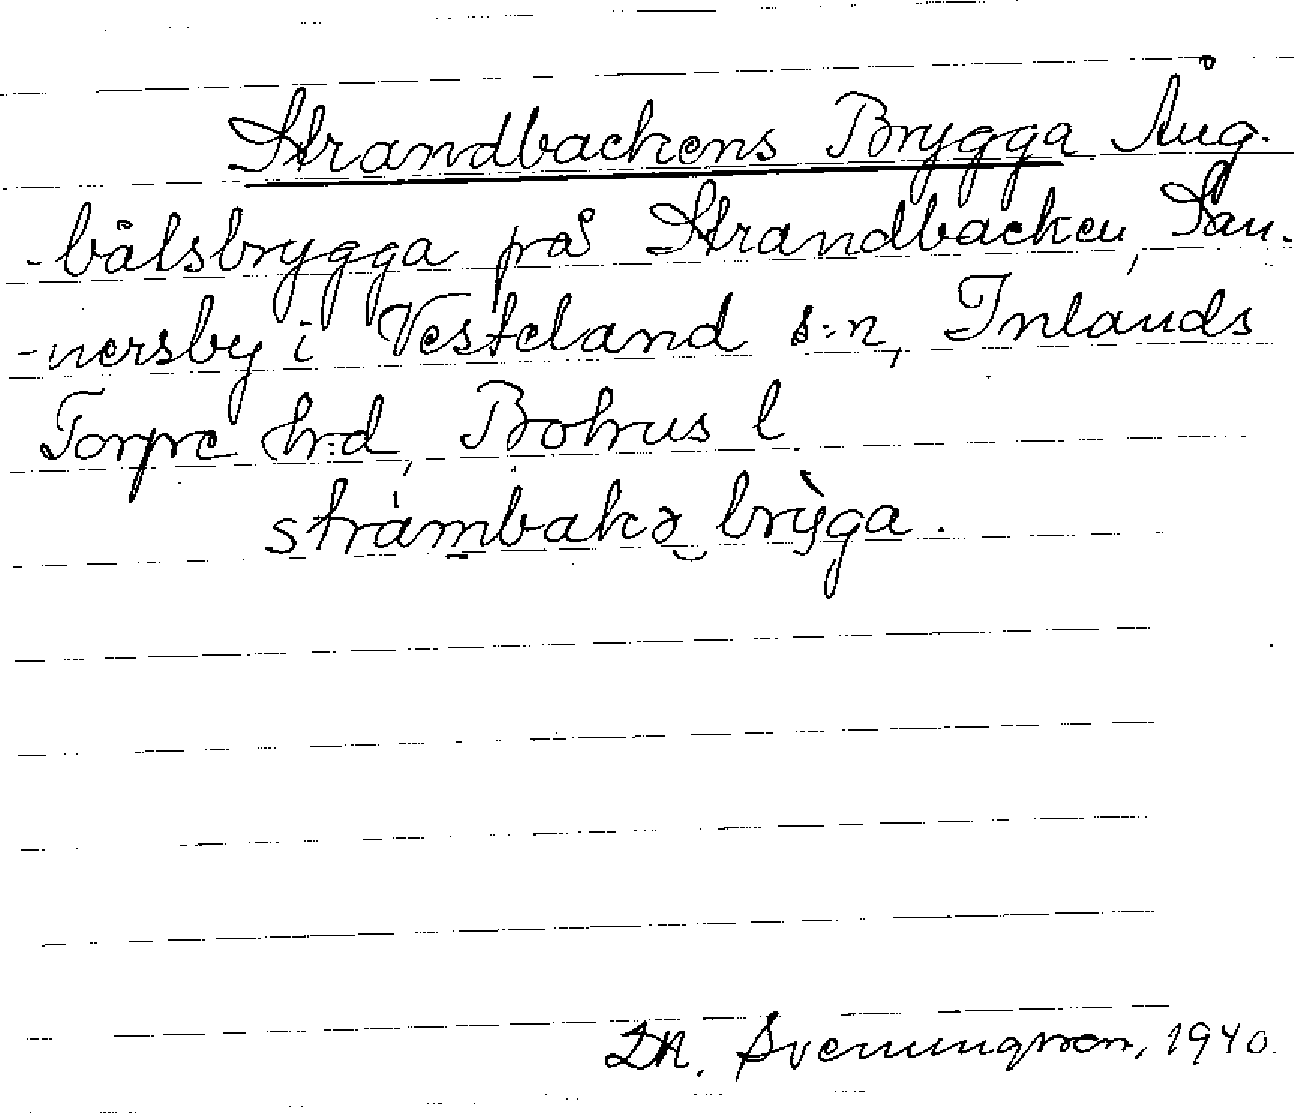 Strandbackens Brygga Ång-
-båtsbrygga på Strandbacken, San-
-nersby i Vesteland s:n, Inlands
Torpe h:d, Bohus l
stràmbakə brỳga.
Svenungsson, 1940.